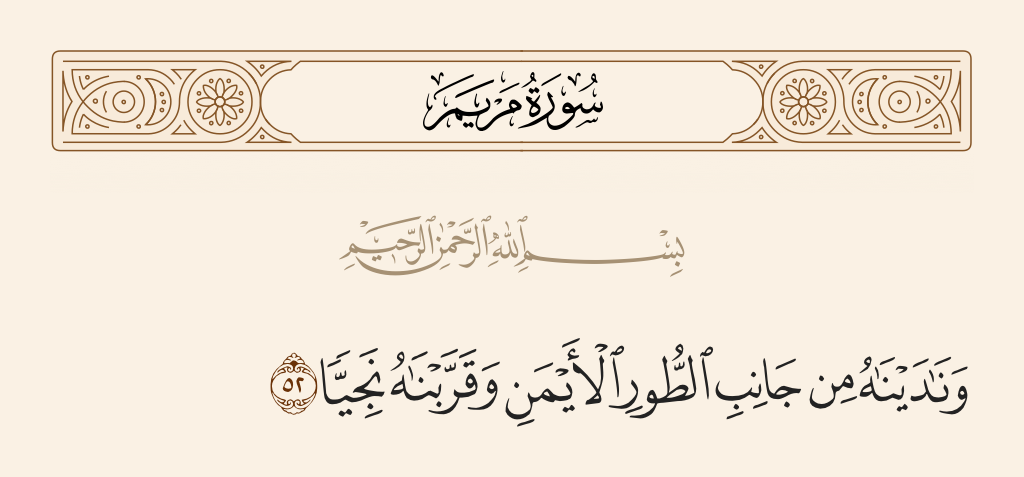 سُورَةُ مَرْيَمَ
بِسْمِ ٱللَّهِ ٱلرَّحْمَٰنِ ٱلرَّحِيمِ
وَنَٰدَيْنَٰهُ مِن جَانِبِ ٱلطُّورِ ٱلْأَيْمَنِ وَقَرَّبْنَٰهُ نَجِيًّا ٥٢